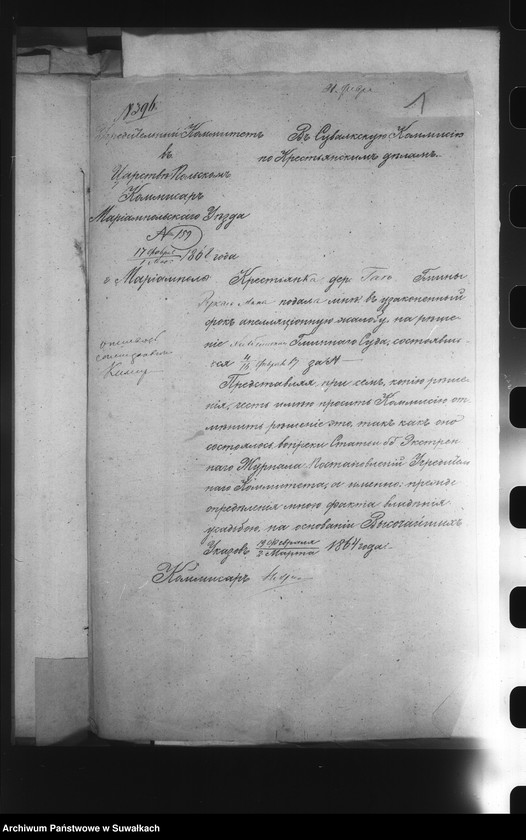 № 396.
1
Учредительный Комитетъ
въ
Царствѣ Польскомъ
Коммисаръ
Маріампольскаго Уѣзда
№ 159
17 Февраля / 1 Марта 1868 года
г. Маріамполь
Въ Сувалкскую Коммисію
по Крестьянскимъ дѣламъ.
Крестьянка дер. Гмины
подала мнѣ въ узаконенный
срокъ апелляціонную жалобу на рѣше-
ніе Гминнаго Суда, состоявше-
еся за №
Представляя при семъ, копію рѣше-
нія, честь имѣю просить Коммисію от-
мѣнить рѣшеніе это, такъ какъ оно
состоялось вопреки Статьи 66 Экстрен-
наго Журнала Постановленій Учредитель-
наго Комитета, а именно: прежде
опредѣленія мною факта владѣнія
усадьбою, на основаніи Высочайшихъ
Указовъ 19 Февраля / 2 Марта 1864 года.
Коммисаръ
Archiwum Państwowe w Suwałkach